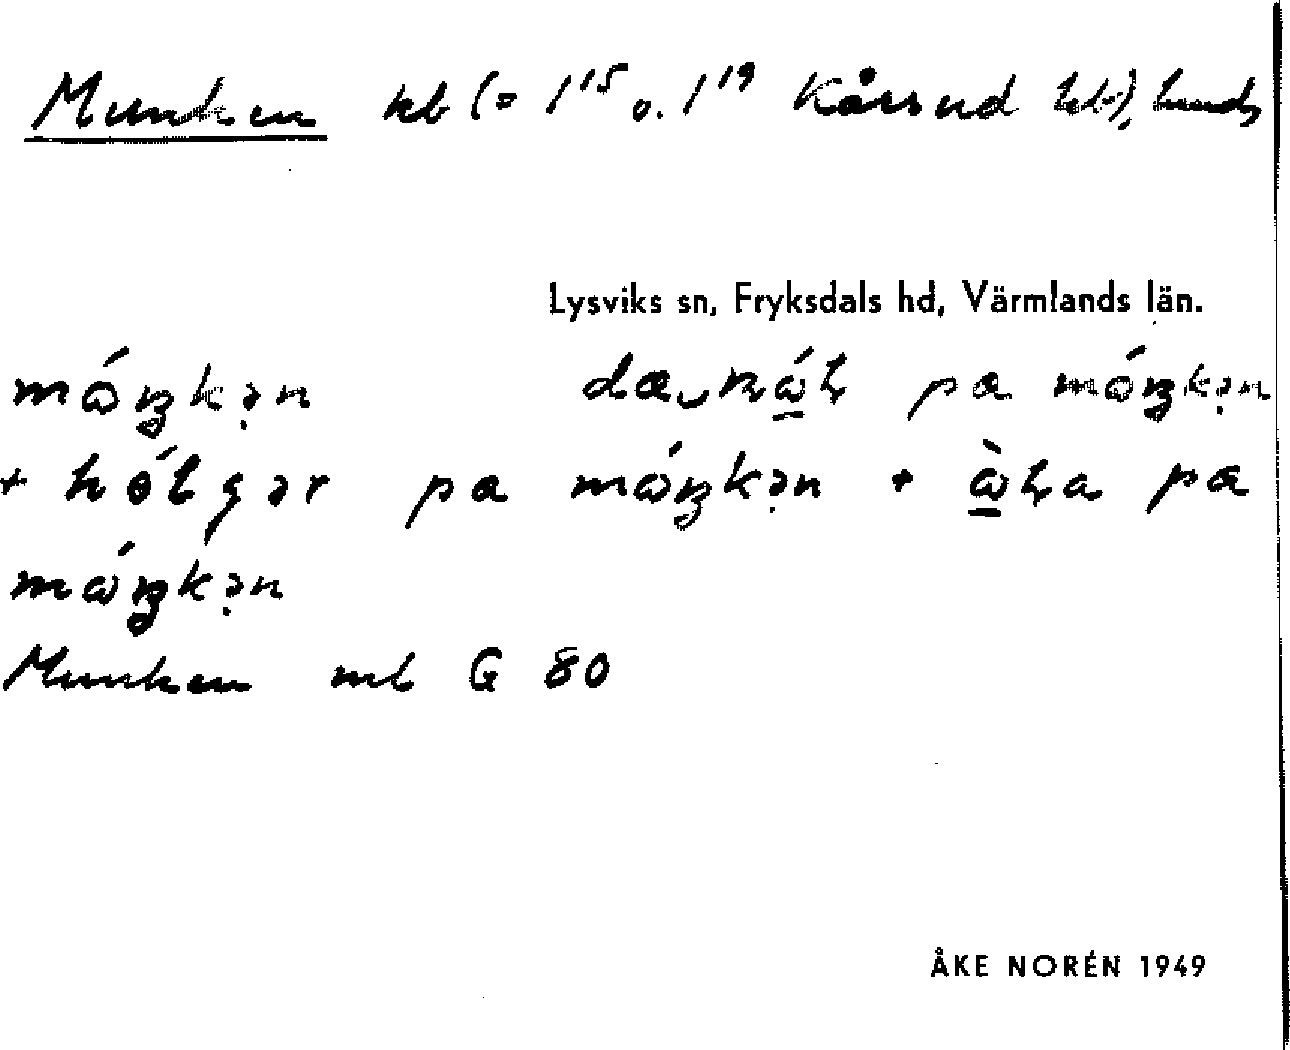 Munken hb (= 1¹⁵ o. 1¹⁹ Kårsud hb),
Lysviks sn, Fryksdals hd, Värmlands län.
mώŋkən pa mώŋkən
+ hólgər pa mώŋkən + pa
mώŋkən
Munken ml G 80
ÅKE NORÉN 1949